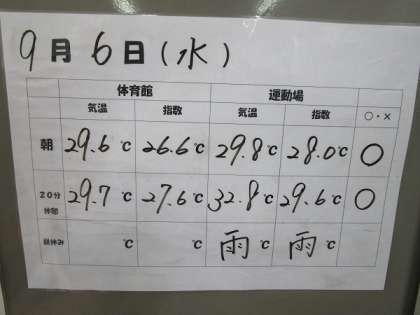 9月6日(水)
体育館 運動場
気温 指数 気温 指数 ○・×
朝 29.6℃ 26.6℃ 29.8℃ 28.0℃ ○
20分休憩 29.7℃ 27.6℃ 32.8℃ 29.6℃ ○
昼休み ℃ ℃ 雨℃ 雨℃